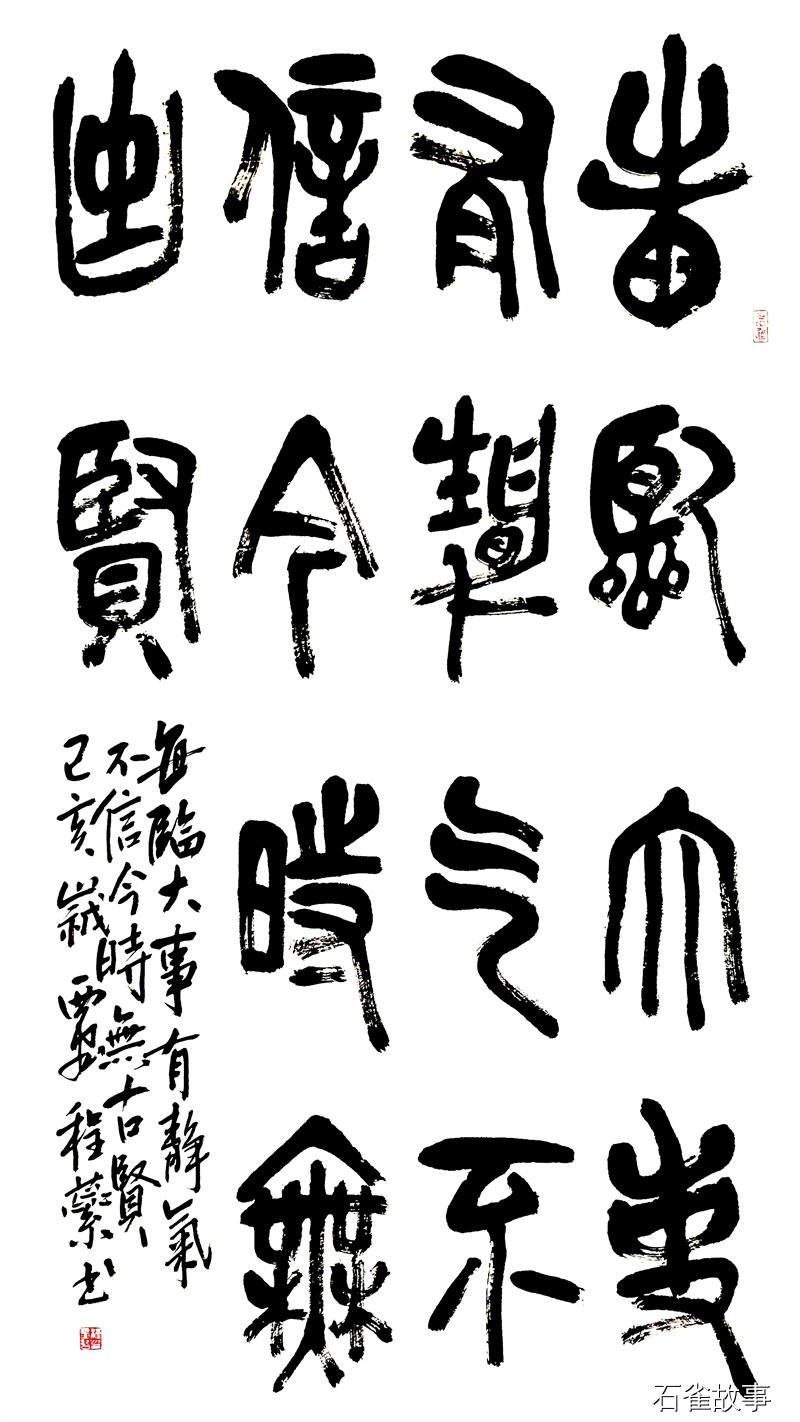 每臨大事
有靜气不
信今時無
古賢
每臨大事有靜氣
不信今時無古賢
己亥歲 程 书
石雀故事